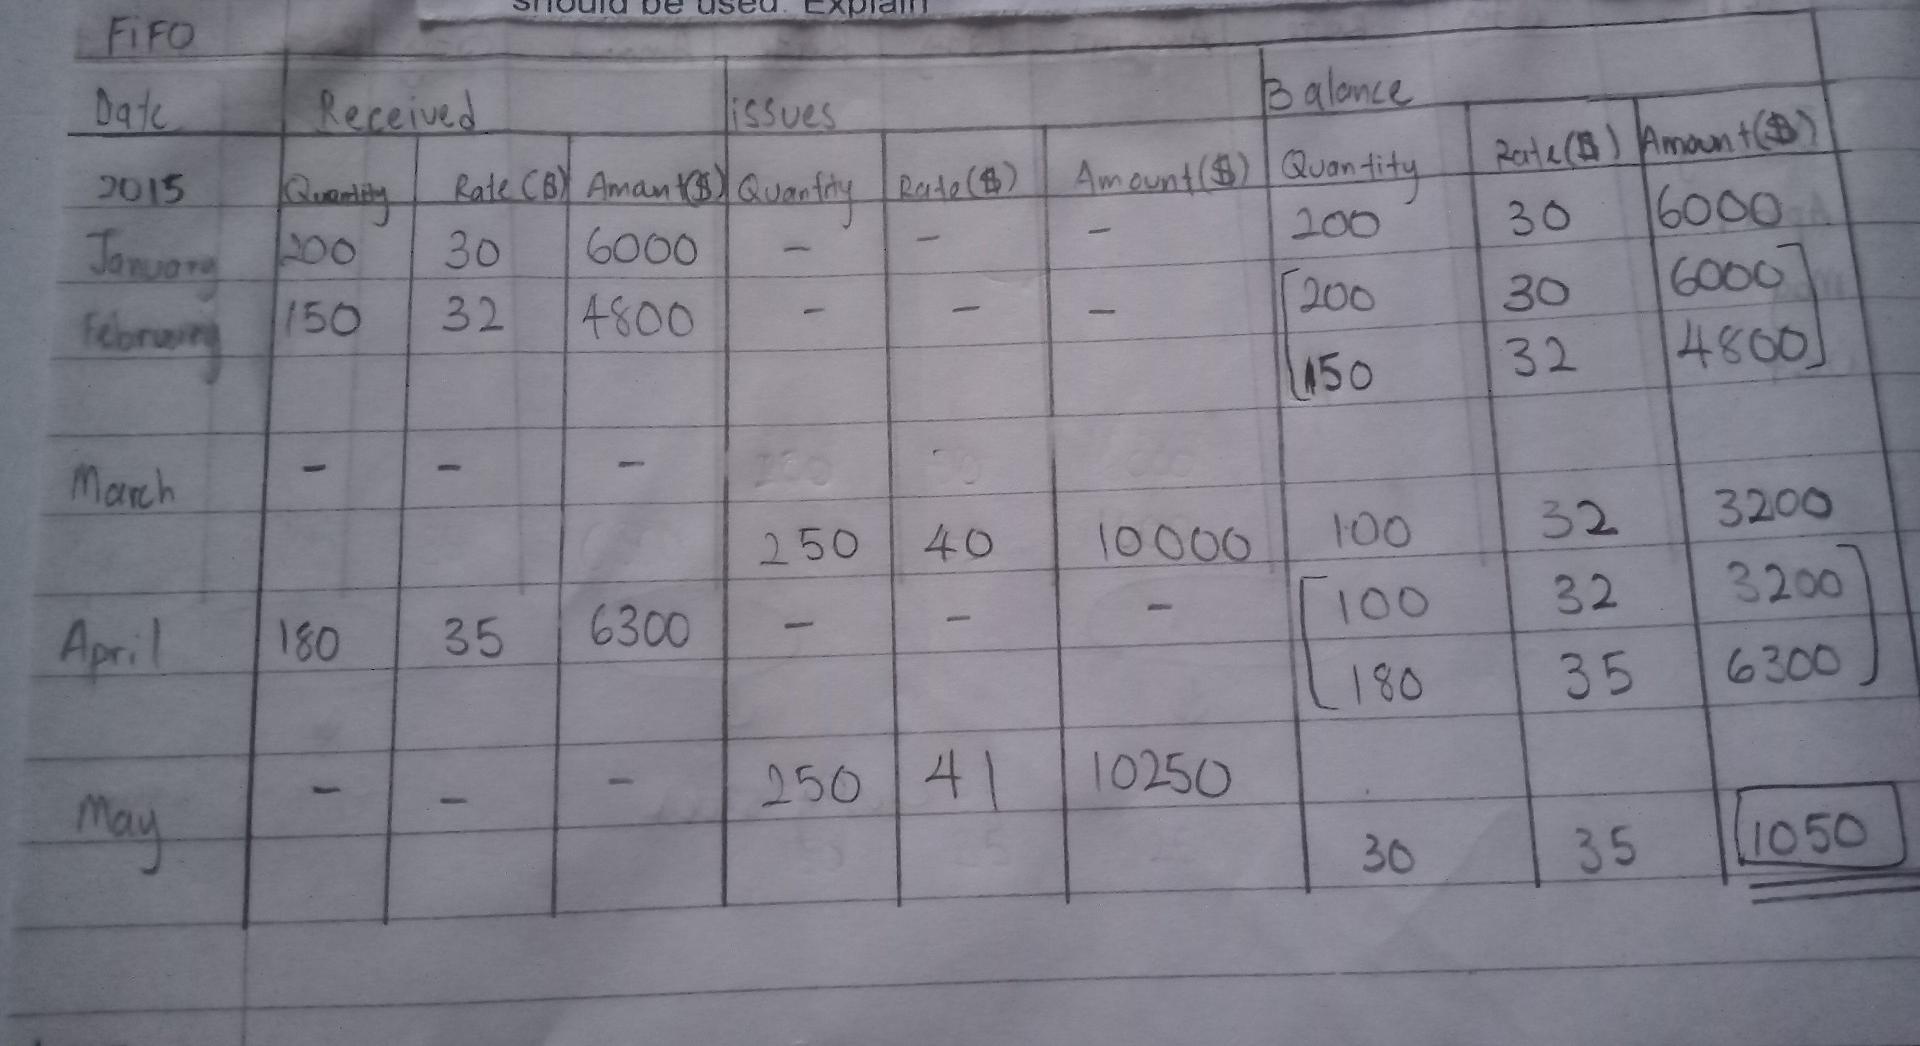 should be used. Explain
FiFO
Date Received issues Balance
2015 Quantity Rate($) Amount($) Quantity Rate($) Amount($) Quantity Rate($) Amount($)
January 200 30 6000 - - - 200 30 6000
February 150 32 4800 - - - [200 30 6000]
[150 32 4800]
March - - -
250 40 10000 100 32 3200
April 180 35 6300 - - - [100 32 3200]
[180 35 6300]
May - - - 250 41 10250
30 35 1050